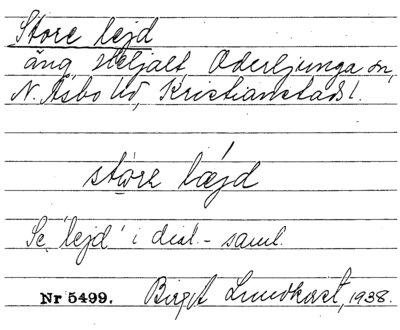 Store lejd
äng Heljalt Oderljunga sn,
N. Åsbo hd, Kristianstads l.
støre læjd
Se 'lejd' i dial.-saml.
Nr 5499. Birgit Lundkvist, 1938.